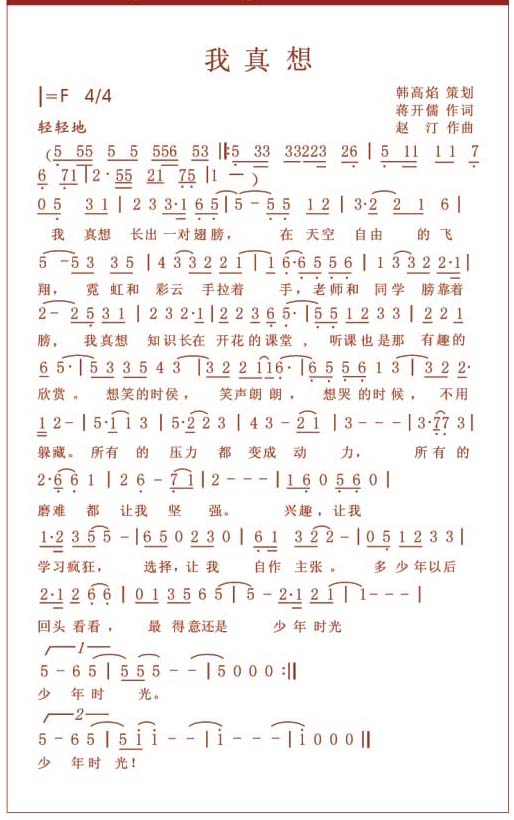 我真想
1=F 4/4
韩高焰 策划
蒋开儒 作词
赵 汀 作曲
轻轻地
(5 55 5 5 556 53 |: 5 33 33223 26 | 5 11 1 1 7
6 71 | 2· 55 21 75 | 1 — )
0 5 3 1 | 2 3 3·1 6 5 | 5 - 5 5 1 2 | 3·2 2 1 6 |
我 真想 长出一对翅膀， 在 天空 自由 的 飞
5 -5 3 3 5 | 4 3 3 2 2 1 | 1 6·6 5 5 6 | 1 3 3 2 2·1 |
翔， 霓 虹和 彩云 手拉着 手，老师和 同学 膀靠着
2- 2 5 3 1 | 2 3 2·1 | 2 2 3 6 5· | 5 5 1 2 3 3 | 2 2 1
膀， 我真想 知识长在 开花的课堂， 听课也是那 有趣的
6 5· | 5 3 3 5 4 3 | 3 2 2 1 1 6· | 6 5 5 6 1 3 | 3 2 2·
欣赏。 想笑的时侯， 笑声朗朗， 想哭的时候，不用
1 2 - | 5·1 1 3 | 5·2 2 3 | 4 3 - 2 1 | 3 - - - | 3·7 7 3 |
躲藏。所有 的 压力 都 变成 动 力， 所有 的
2·6 6 1 | 2 6 - 7 1 | 2 - - - | 1 6 0 5 6 0 |
磨难 都 让我 坚 强。 兴趣，让我
1·2 3 5 5 - | 6 5 0 2 3 0 | 6 1 3 2 2 - | 0 5 1 2 3 3 |
学习疯狂， 选择，让 我 自作 主张。 多 少年以后
2·1 2 6 6 | 0 1 3 5 6 5 | 5 - 2·1 2 1 | 1 - - - |
回头 看看， 最 得意还是 少 年 时光
1
5 - 6 5 | 5 5 5 - - | 5 0 0 0 :||
少 年时 光。
2
5 - 6 5 | 5 1 1 - - | 1 - - - | 1 0 0 0 ||
少 年时 光！